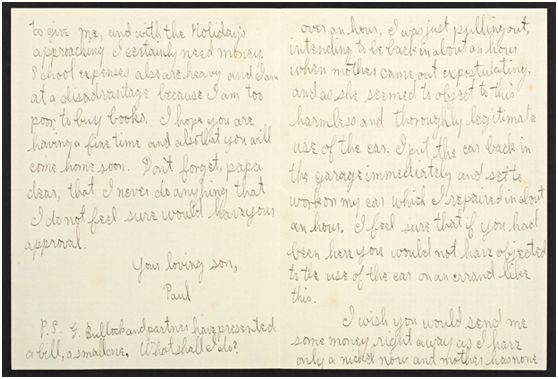 over an hour. I was just pulling out,
intending to be back in about an hour
when mother came out expostulating,
and as she seemed to object to this
harmless and thoroughly legitimate
use of the car. I put the car back in
the garage immediately and set to
work on my car which I repaired in about
an hour. I feel sure that if you had
been here you would not have objected
to the use of the car on an errand like
this.
I wish you would send me
some money right away as I have
only a nickel now and mother has none
to give me, and with the Holidays
approaching I certainly need money.
School expenses also are heavy and I am
at a disadvantage because I am too
poor to buy books. I hope you are
having a fine time and also that you will
come home soon. Don't forget, papa
dear, that I never do anything that
I do not feel sure would have your
approval.
Your loving son,
Paul
P.S. G. Bullock and partner have presented
a bill, a small one, What shall I do?